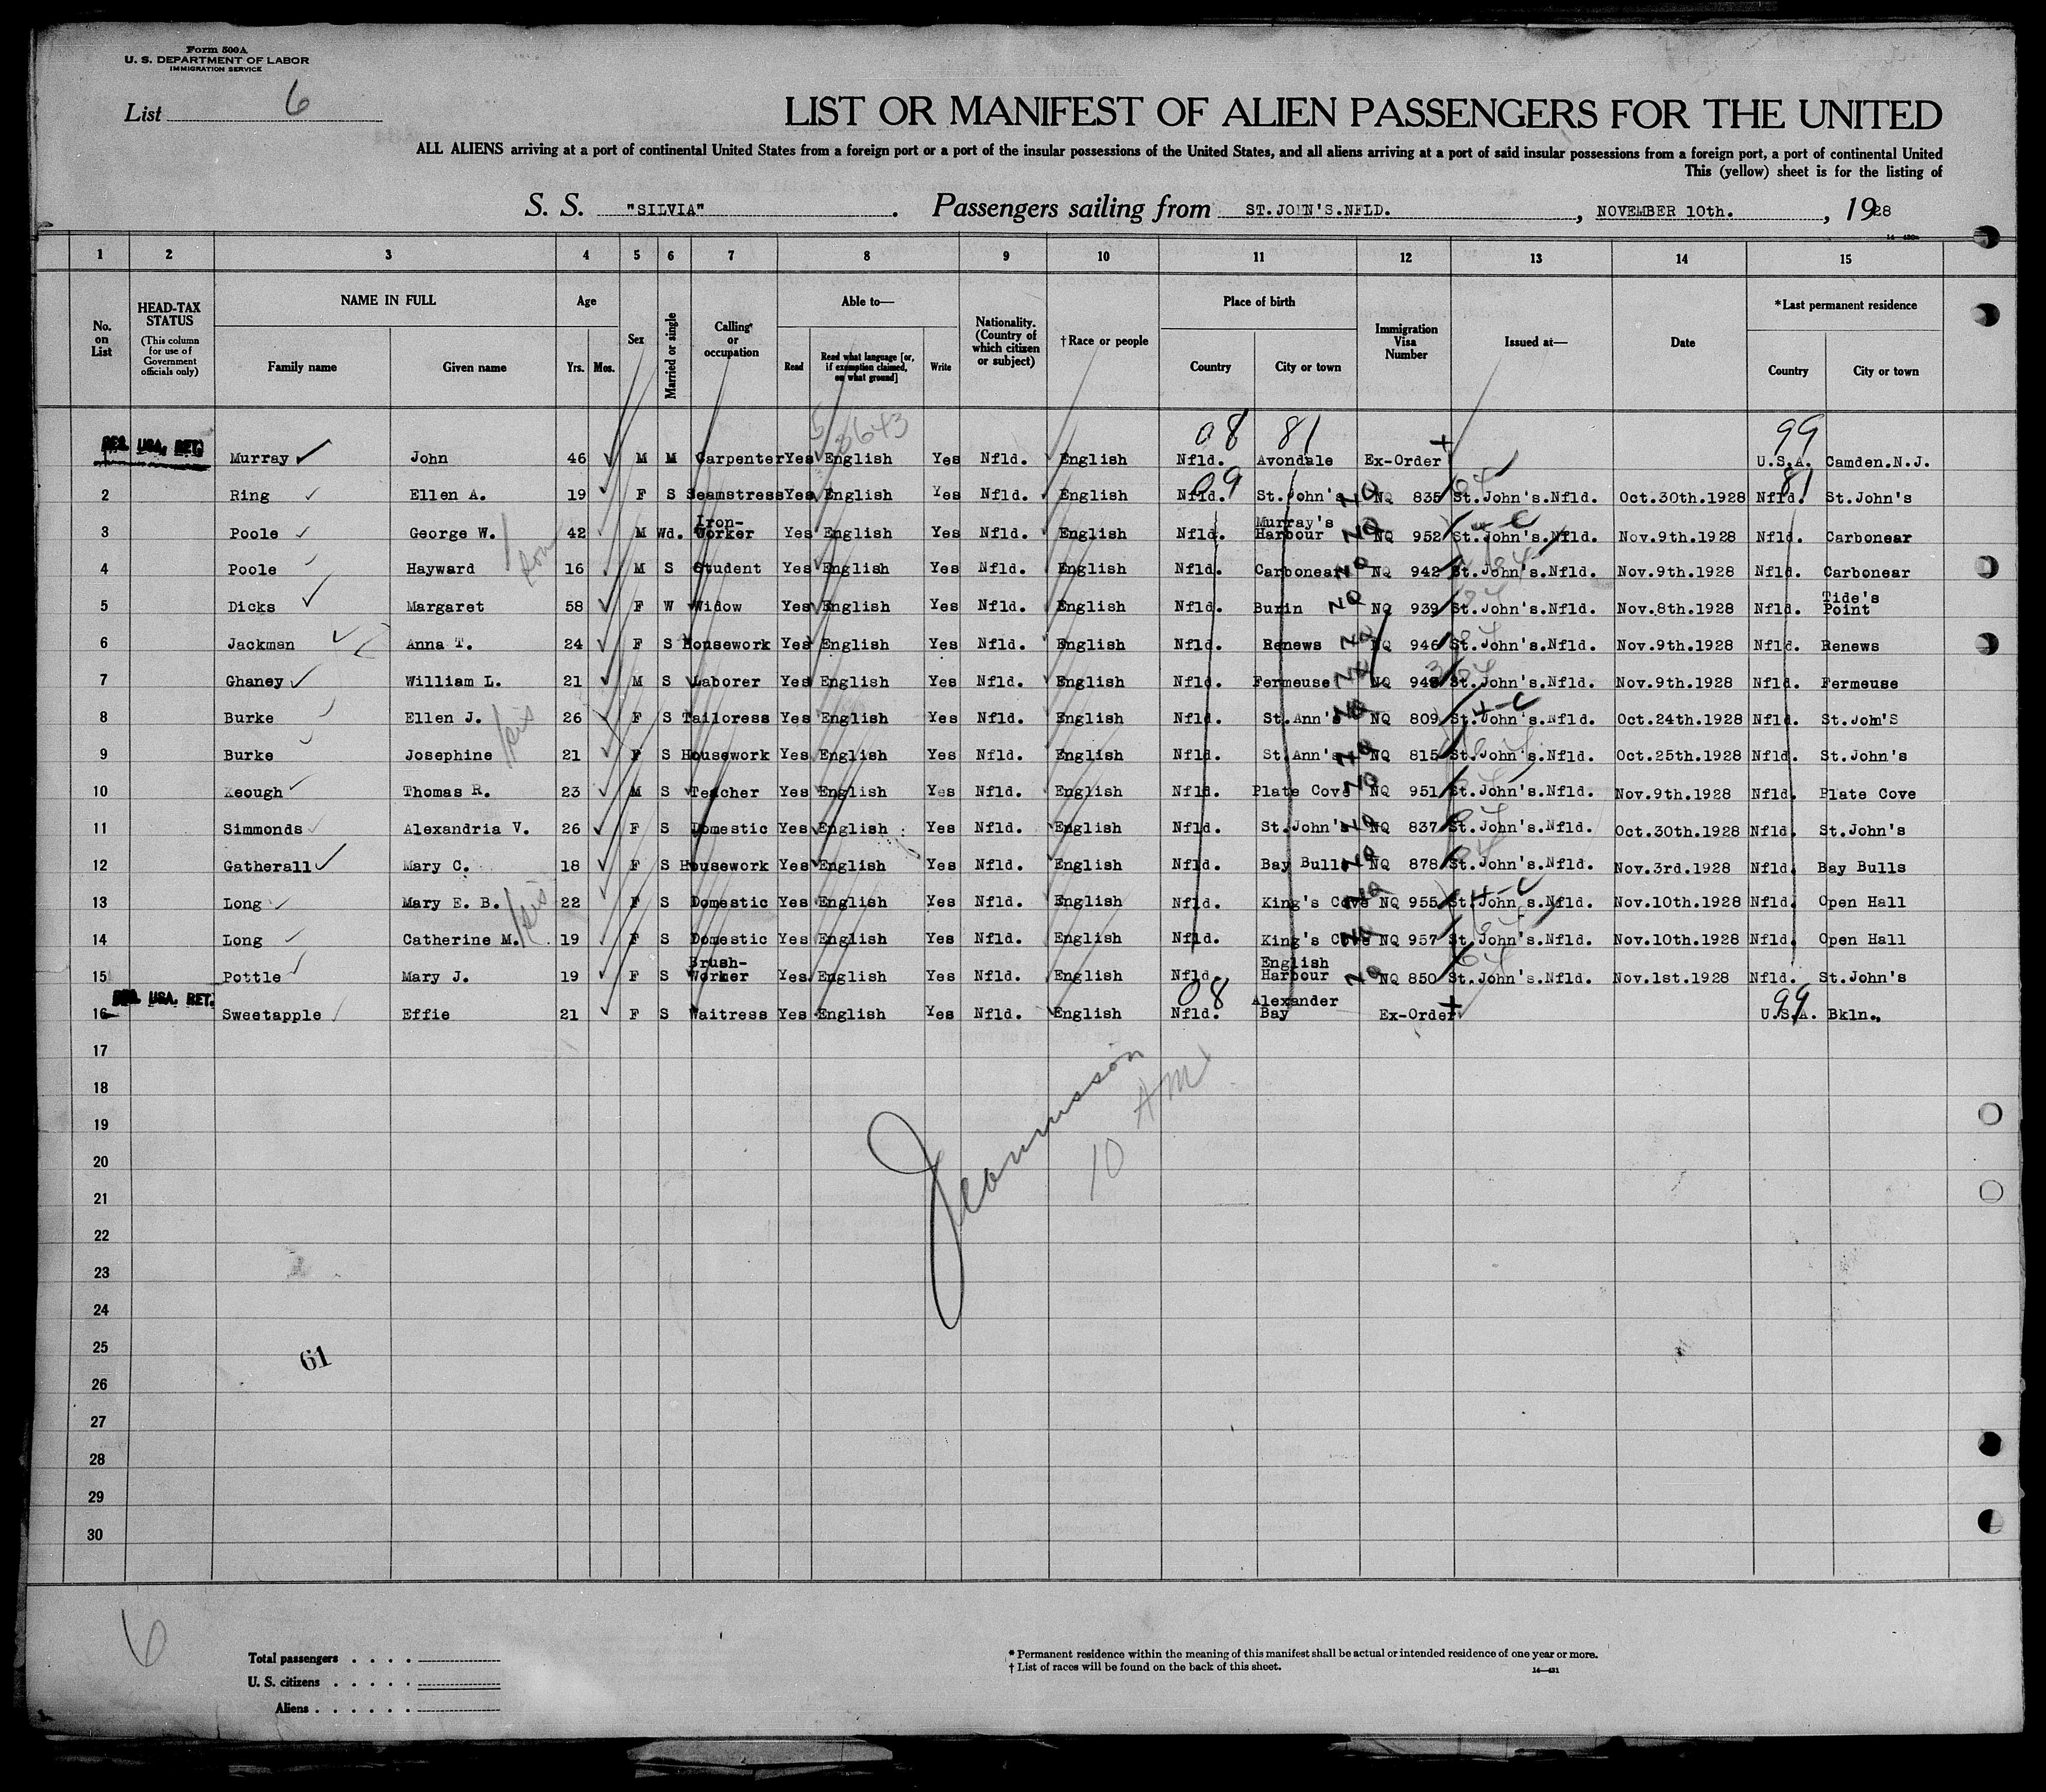 Form 500A
U. S. DEPARTMENT OF LABOR
IMMIGRATION SERVICE
List 6
LIST OR MANIFEST OF ALIEN PASSENGERS FOR THE UNITED
ALL ALIENS arriving at a port of continental United States from a foreign port or a port of the insular possessions of the United States, and all aliens arriving at a port of said insular possessions from a foreign port, a port of continental United
This (yellow) sheet is for the listing of
S. S. "SILVIA" . Passengers sailing from ST.JOHN'S.NFLD. , NOVEMBER 10th. , 1928
1 2 3 4 5 6 7 8 9 10 11 12 13 14 15
No. on List HEAD-TAX STATUS (This column for use of Government officials only) NAME IN FULL Family name Given name Age Yrs. Mos. Sex Married or single Calling or occupation Able to— Read Read what language [or, if exemption claimed, on what ground] Write Nationality. (Country of which citizen or subject) †Race or people Place of birth Country City or town Immigration Visa Number Issued at— Date *Last permanent residence Country City or town
5/8643 08 81 99
USA. RET. Murray John 46 M M Carpenter Yes English Yes Nfld. English Nfld. Avondale Ex-Order U.S.A. Camden.N.J.
2 Ring Ellen A. 19 F S Seamstress Yes English Yes Nfld. English Nfld. 09 St.John's NQ NQ 835 St.John's.Nfld. Oct.30th.1928 Nfld. 81 St.John's
3 Poole George W. 42 M Wd. Iron-Worker Yes English Yes Nfld. English Nfld. Murray's Harbour NQ NQ 952 4-C St.John's.Nfld. Nov.9th.1928 Nfld. Carbonear
4 Poole Hayward son 16 M S Student Yes English Yes Nfld. English Nfld. Carbonear NQ NQ 942 St.John's.Nfld. Nov.9th.1928 Nfld. Carbonear
5 Dicks Margaret 58 F W Widow Yes English Yes Nfld. English Nfld. Burin NQ NQ 939 St.John's.Nfld. Nov.8th.1928 Nfld. Tide's Point
6 Jackman Anna T. 24 F S Housework Yes English Yes Nfld. English Nfld. Renews NQ NQ 946 St.John's.Nfld. Nov.9th.1928 Nfld. Renews
7 Ghaney William L. 21 M S Laborer Yes English Yes Nfld. English Nfld. Fermeuse NQ NQ St.John's.Nfld. Nov.9th.1928 Nfld. Fermeuse
8 Burke Ellen J. 26 F S Tailoress Yes English Yes Nfld. English Nfld. St.Ann's NQ NQ 809 4-C St.John's.Nfld. Oct.24th.1928 Nfld. St.John'S
9 Burke Josephine sis 21 F S Housework Yes English Yes Nfld. English Nfld. St.Ann's NQ NQ 815 St.John's.Nfld. Oct.25th.1928 Nfld. St.John's
10 Keough Thomas R. 23 M S Teacher Yes English Yes Nfld. English Nfld. Plate Cove NQ NQ 951 St.John's.Nfld. Nov.9th.1928 Nfld. Plate Cove
11 Simmonds Alexandria V. 26 F S Domestic Yes English Yes Nfld. English Nfld. St.John's NQ NQ 837 St.John's.Nfld. Oct.30th.1928 Nfld. St.John's
12 Gatherall Mary C. 18 F S Housework Yes English Yes Nfld. English Nfld. Bay Bulls NQ NQ 878 St.John's.Nfld. Nov.3rd.1928 Nfld. Bay Bulls
13 Long Mary E. B. 22 F S Domestic Yes English Yes Nfld. English Nfld. King's Cove NQ NQ 955 4-C St.John's.Nfld. Nov.10th.1928 Nfld. Open Hall
14 Long Catherine M. sis 19 F S Domestic Yes English Yes Nfld. English Nfld. King's Cove NQ NQ 957 St.John's.Nfld. Nov.10th.1928 Nfld. Open Hall
15 Pottle Mary J. 19 F S Brush-Worker Yes English Yes Nfld. English Nfld. English Harbour NQ NQ 850 St.John's.Nfld. Nov.1st.1928 Nfld. St.John's
16 USA. RET. Sweetapple Effie 21 F S Waitress Yes English Yes Nfld. English 08 Nfld. Alexander Bay Ex-Order 99 U.S.A. Bkln.
17
18
10 AM
19
20
21
22
23
24
25
61
26
27
28
29
30
6
Total passengers
U. S. citizens
Aliens
* Permanent residence within the meaning of this manifest shall be actual or intended residence of one year or more.
† List of races will be found on the back of this sheet. 14—431